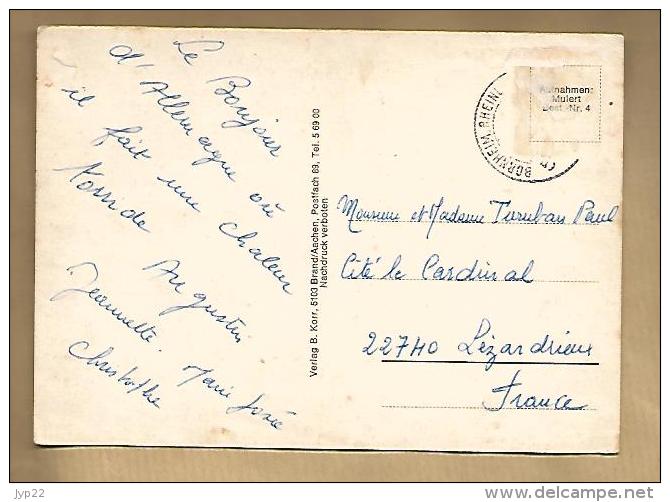 Le Bonjour
d'Allemagne où
il fait une chaleur
Torride
Augustin
Jeannette. Marie Josée
Christophe
Verlag B. Korr, 5103 Brand/Aachen, Postfach 89, Tel. 5 69 00
Nachdruck verboten
BORNHEIM, RHEINL
Aufnahmen:
Mulert
Best.-Nr. 4
Monsieur et Madame Paul
Cité le Cardinal
22740 Lézardrieux
France
jyp22